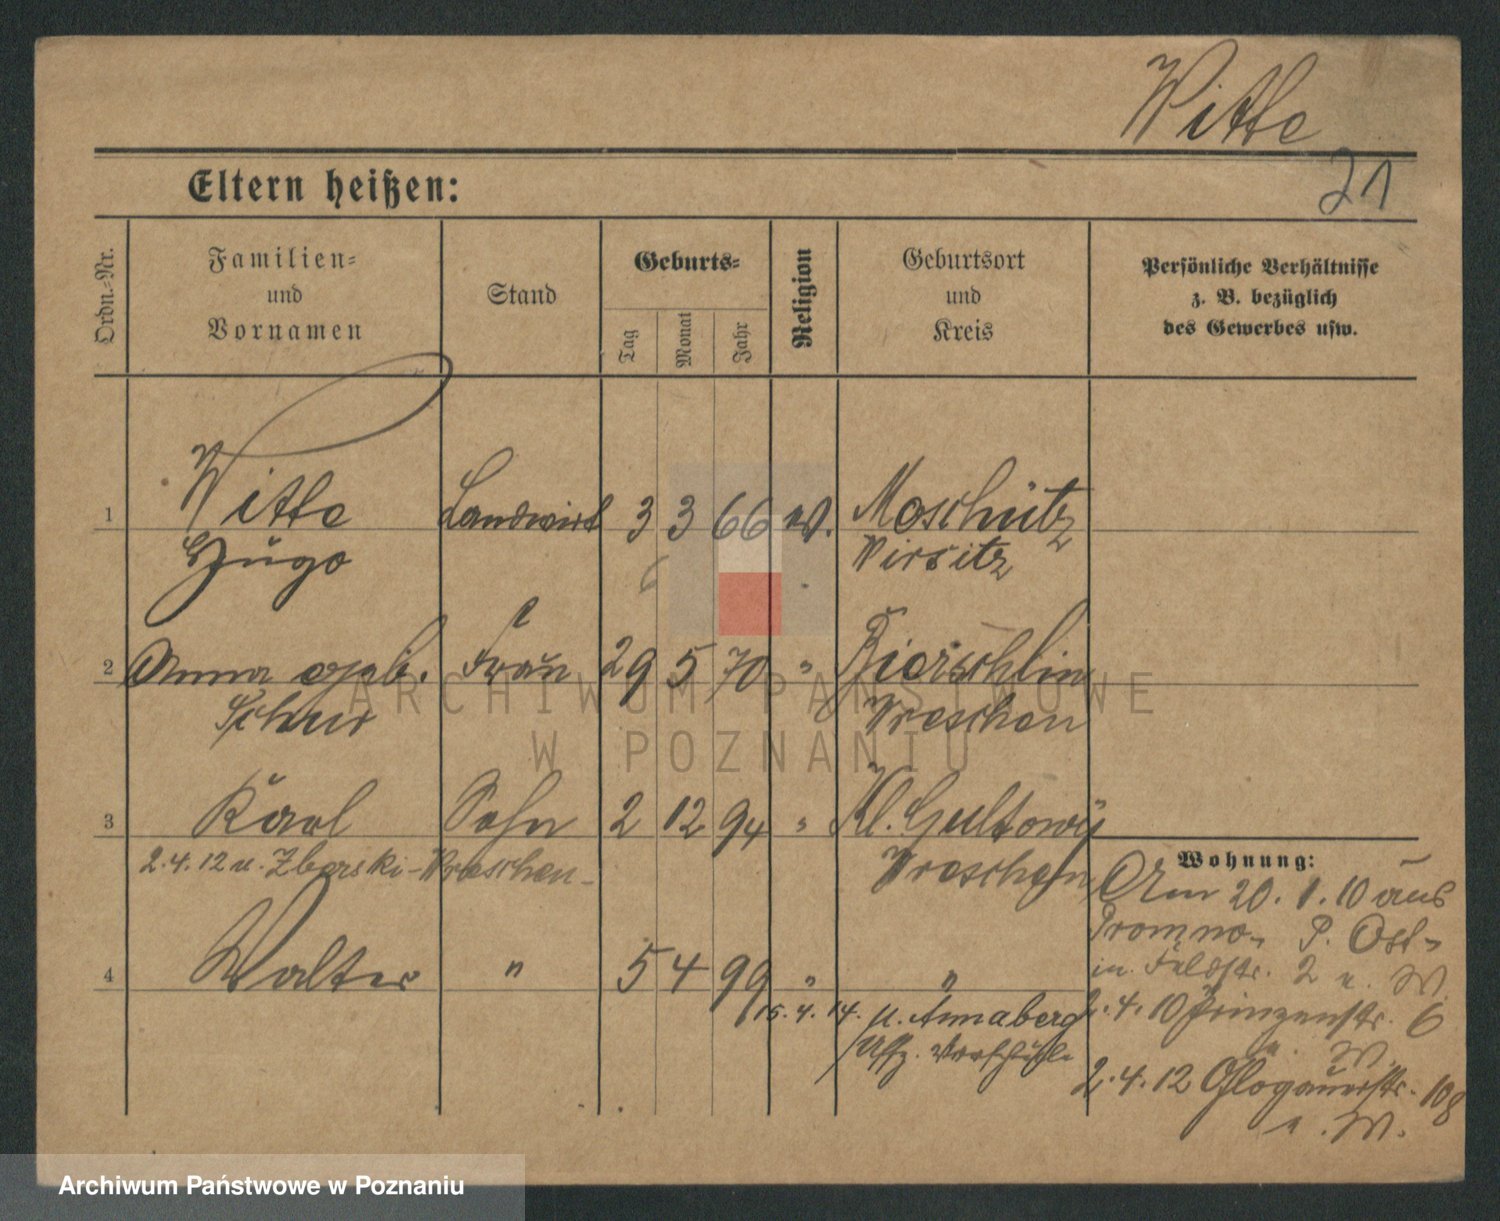 Witte
21
Eltern heißen:
Ordn.-Nr.
Familien-
und
Vornamen
Stand
Geburts-
Tag
Monat
Jahr
Religion
Geburtsort
und
Kreis
Persönliche Verhältnisse
z. B. bezüglich
des Gewerbes usw.
1 Witte Landwirt 3 3 66 ev. Moschütz
Hugo Wirsitz
6
2 Anna geb. Frau 29 5 70 " Bierschlin
Schur Wreschen
3 Karl Sohn 2 12 94 " Kl. Gultowy
2.4.12 n. Zberki-Wreschen- Wreschen
Wohnung:
Am 20.1.10 aus
Promno, P. Ost,
in Feldstr. 2 u. W.
4 Walter " 5 4 99 " "
15.4.14. n. Annaberg
Uffz. Vorschule
2.4.10 Prinzenstr. 6
u. W.
2.4.12 Glogauerstr. 108
u. W.
ARCHIWUM PAŃSTWOWE
W POZNANIU
Archiwum Państwowe w Poznaniu